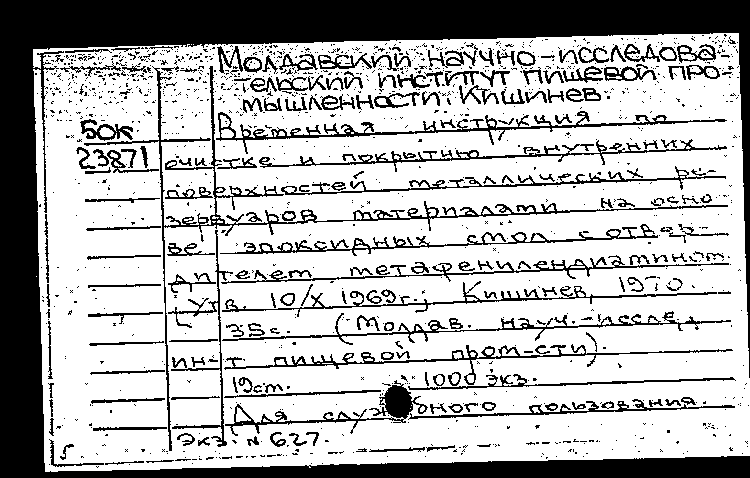 Молдавский научно-исследова-
тельский институт пищевой про-
мышленности. Кишинев.
Бок
23871
Временная инструкция по
очистке и покрытию внутренних
поверхностей металлических ре-
зервуаров материалами на осно
ве эпоксидных смол с отвер-
дителем метафенилендиамином
[Утв. 10/X 1969г.; Кишинев, 1970.
35с. (Молдав. науч.-исслед.
ин-т пищевой пром-сти).
19см. 1000 экз.
Для служебного пользования.
Экз. N 627.
5